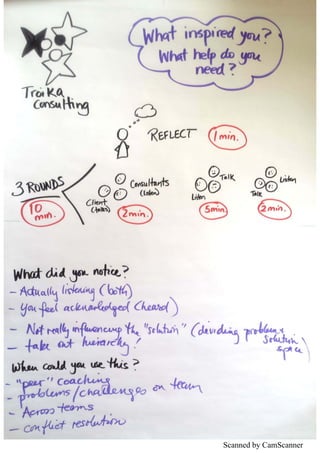 What inspired you?
What help do you
need?
Troika
Consulting
REFLECT
1 min.
3 ROUNDS
10
min.
Client
(talks)
Consultants
(listen)
2 min.
Talk
Listen
5 min.
Listen
Talk
2 min.
What did you notice?
- Actually listening (both)
- You feel acknowledged (heard)
- Not really influencing the "solution" (dividing problem &
solution
space)
- take out hierarchy!
When could you use this?
- "peer" coaching
- problems/challenges on team
- Across teams
- conflict resolution
Scanned by CamScanner